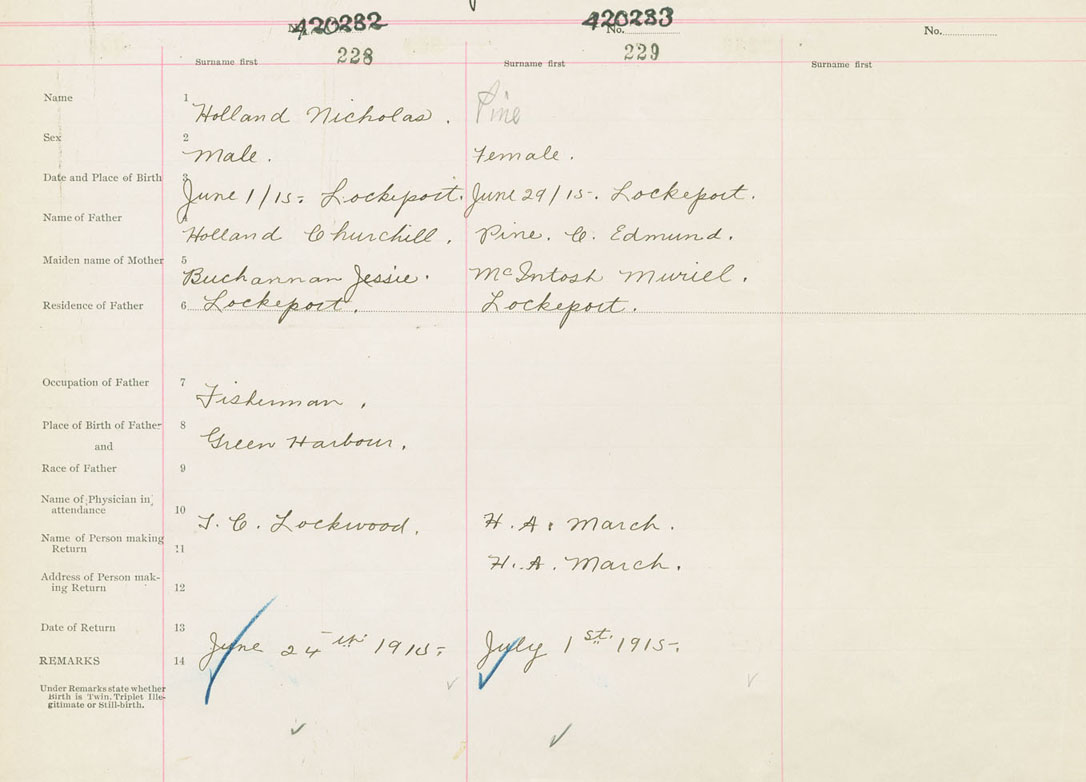 No. 420282
No. 420283
No.
228
229
Surname first
Surname first
Surname first
Name 1 Holland Nicholas. Pine
Sex 2 Male. Female.
Date and Place of Birth 3 June 1/15. Lockeport. June 29/15. Lockeport.
Name of Father 4 Holland Churchill. Pine. C. Edmund.
Maiden name of Mother 5 Buchannan Jessie. McIntosh Muriel.
Residence of Father 6 Lockeport. Lockeport.
Occupation of Father 7 Fisherman.
Place of Birth of Father 8 Green Harbour.
and
Race of Father 9
Name of Physician in
attendance 10 T. C. Lockwood. H. A. March.
Name of Person making
Return 11 H. A. March.
Address of Person mak-
ing Return 12
Date of Return 13 June 24th 1915. July 1st. 1915.
REMARKS 14
Under Remarks state whether
Birth is Twin, Triplet Ille-
gitimate or Still-birth.